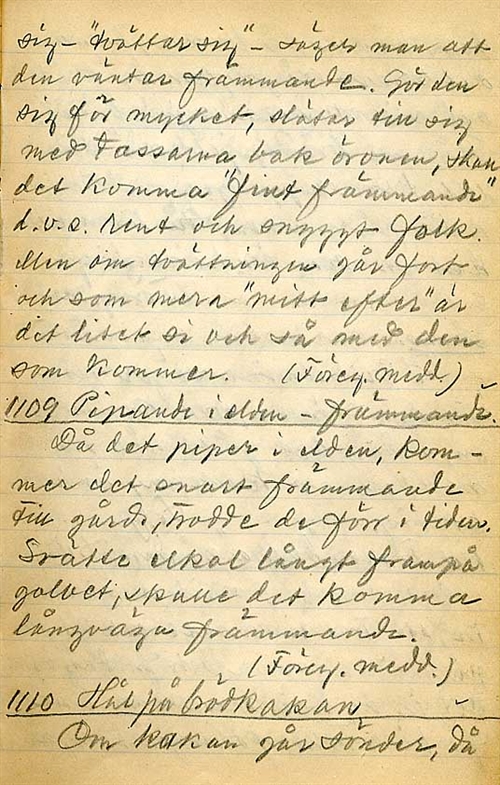 sig - "tvättar sig" - säger man att
den väntar främmande. Gör den
sig för mycket, slätar till sig
med tassarna bak öronen, skall
det komma "fint främmande"
d.v.s. rent och snyggt folk.
Men om tvättningen går fort
och som mera "mitt efter" är
det litet si och så med den
som kommer. (Föreg. medd.)
1109 Pipande i elden - främmande.
Då det piper i elden, kom-
mer det snart främmande
till gårds, trodde de förr i tiden.
Sprätte elkol långt frampå
golvet, skulle det komma
långväga främmande.
(Föreg. medd.)
1110 Hål på brödkakan
Om kakan går sönder, då